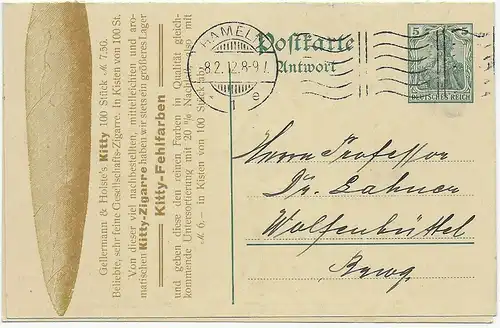 Gellermann & Holste's Kitty 100 Stück M 7.50.
Beliebte, sehr feine Gesellschafts-Zigarre. In Kisten von 100 St.
Von dieser viel nachbestellten, mittelleichten und aro-
matischen Kitty-Zigarre haben wir stets ein größeres Lager
Kitty-Fehlfarben
und geben diese den reinen Farben in Qualität gleich-
kommende Untersortierung mit 20 % Nachlaß (also) mit
M 6.— in Kisten von 100 Stück ab.
HAMELN
8.2.12.8-9V.
1 e
Postkarte
Antwort
5 5
DEUTSCHES REICH
Herrn Professor
Dr. Lahner
Wolfenbüttel